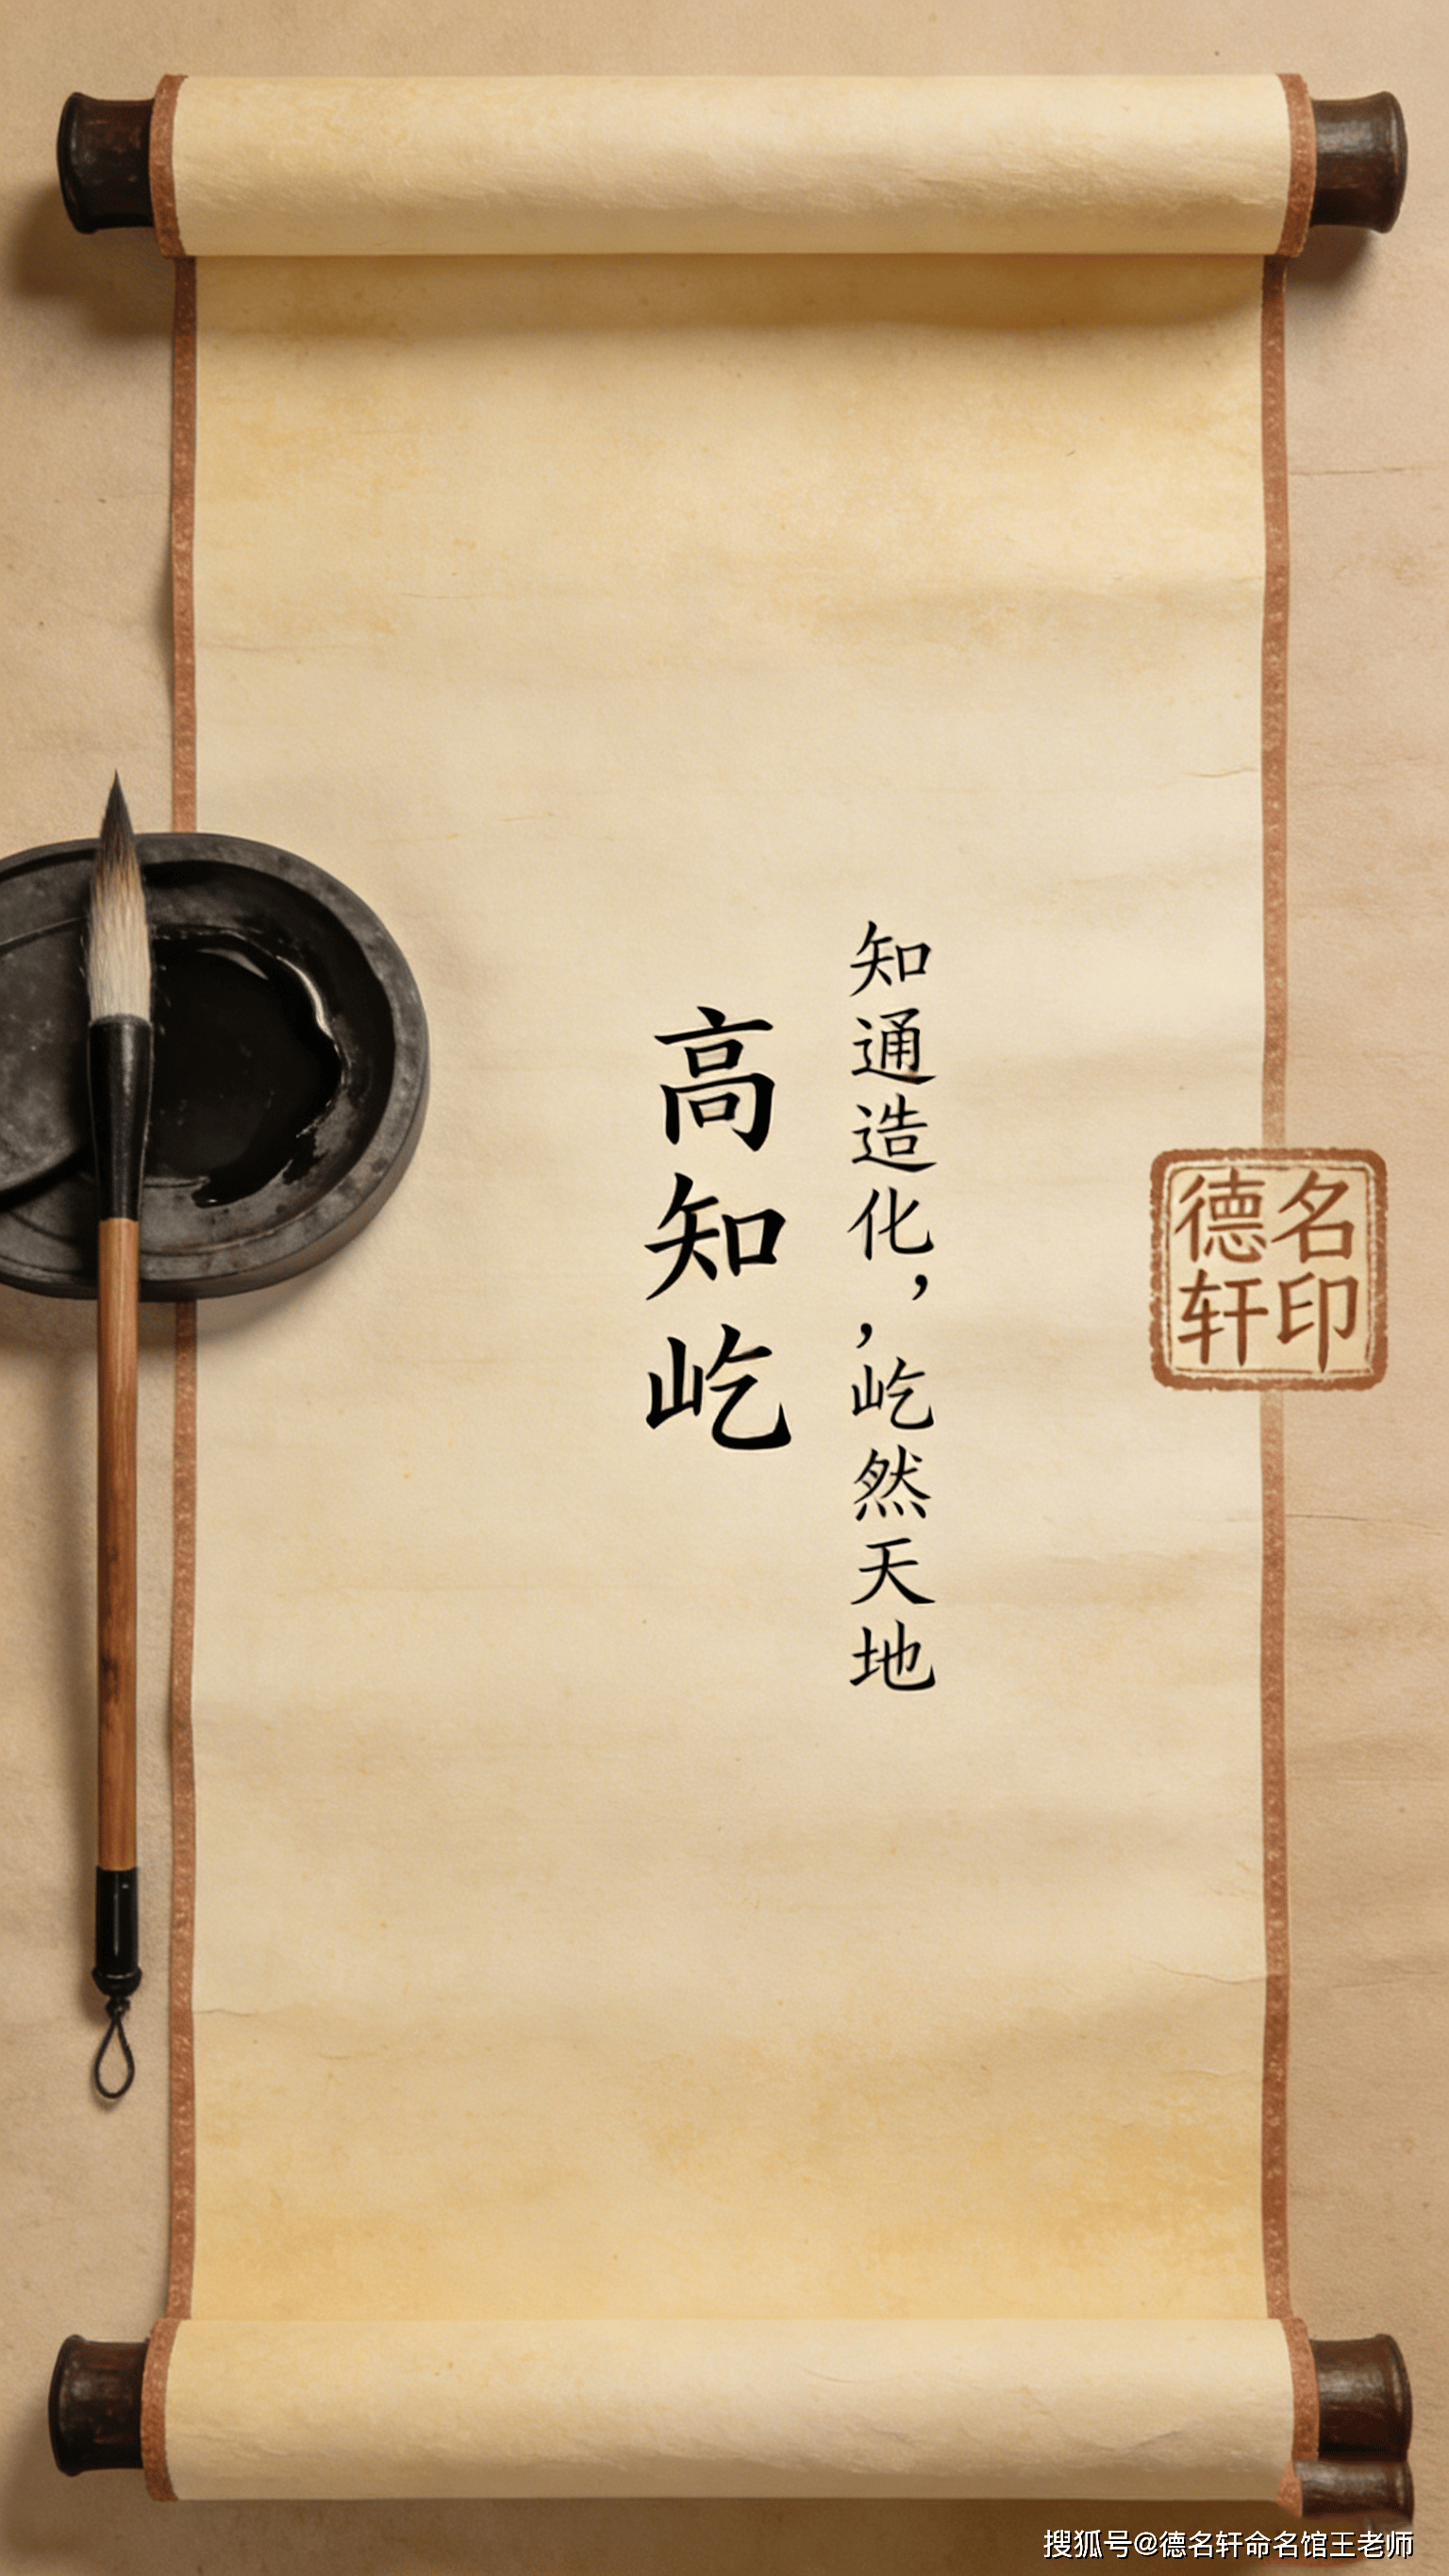 知通造化，，屹然天地
高知屹
德名
轩印
搜狐号@德名轩命名馆王老师